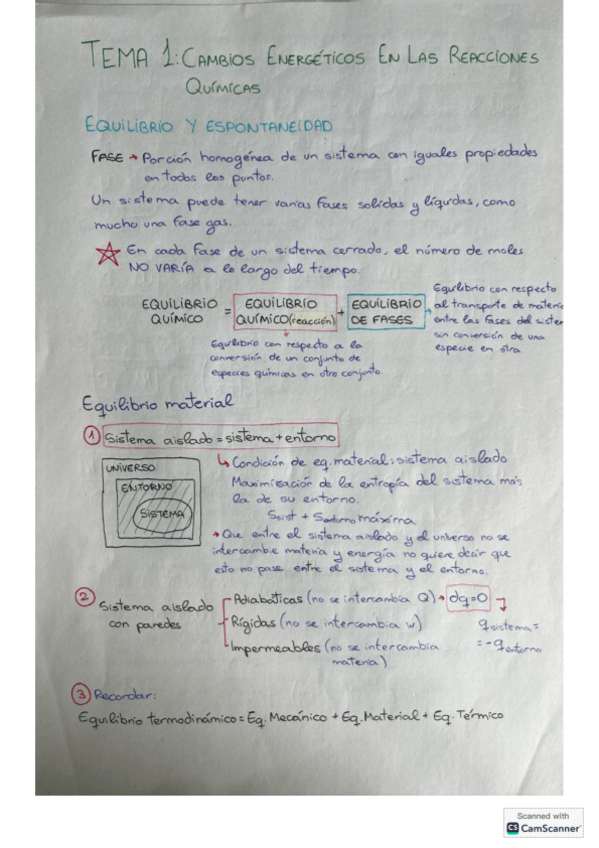 TEMA 1: CAMBIOS ENERGÉTICOS EN LAS REACCIONES
QUÍMICAS
EQUILIBRIO Y ESPONTANEIDAD
FASE → Porción homogénea de un sistema con iguales propiedades
en todos los puntos.
Un sistema puede tener varias fases solidas y líquidas, como
mucho una fase gas.
En cada fase de un sistema cerrado, el número de moles
NO VARÍA a lo largo del tiempo.
EQUILIBRIO QUÍMICO = EQUILIBRIO QUÍMICO (reacción) + EQUILIBRIO DE FASES
Equilibrio con respecto
al transporte de materia
entre las fases del sister
sin conversión de una
especie en otra
Equilibrio con respecto a la
conversión de un conjunto de
especies químicas en otro conjunto
Equilibrio material
① Sistema aislado = sistema + entorno
UNIVERSO
ENTORNO
SISTEMA
↳ Condición de eq. material: sistema aislado
Maximización de la entropía del sistema más
la de su entorno.
Ssist + Sentorno máxima
→ Que entre el sistema aislado y el universo no se
intercambie materia y energía no quiere decir que
esto no pase entre el sistema y el entorno.
② Sistema aislado
con paredes
Adiabáticas (no se intercambia Q) → dq=0
Rígidas (no se intercambia w)
Impermeables (no se intercambia
materia)
qsistema =
= -qentorno
③ Recordar:
Equilibrio termodinámico = Eq. Mecánico + Eq. Material + Eq. Térmico
Scanned with
CS CamScanner